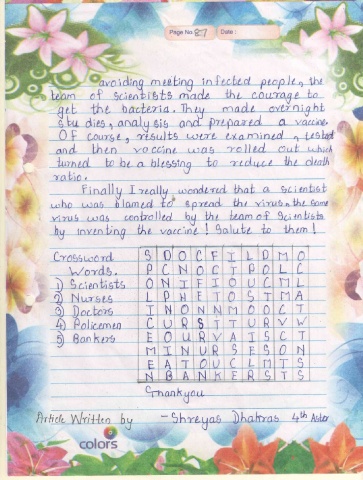 Page No. 87 Date:
avoiding meeting infected people, the
team of scientists made the courage to
get the bacteria. They made overnight
studies, analysis and prepared a vaccine
Of course, results were examined, tested
and then vaccine was rolled out which
turned to be a blessing to reduce the death
ratio.
Finally I really wondered that a scientist
who was blamed to spread the virus, the same
virus was controlled by the team of scientists
by inventing the vaccine! Salute to them!
Crossword
Words.
1) Scientists
2) Nurses
3) Doctors
4) Policemen
5) Bankers
S D O C F I L D M O
P C N O C T P O L C
O N I F I O U C M L
L P N E T O S T M A
I N O N N M O O C T
C U R S T T U R V W
E O U R V A I S C T
M I N U R S E S O N
E A T O U C L M T S
N B A N K E R S T S
Thankyou
Article Written by - Shreyas Dhakras 4th Aster
colors